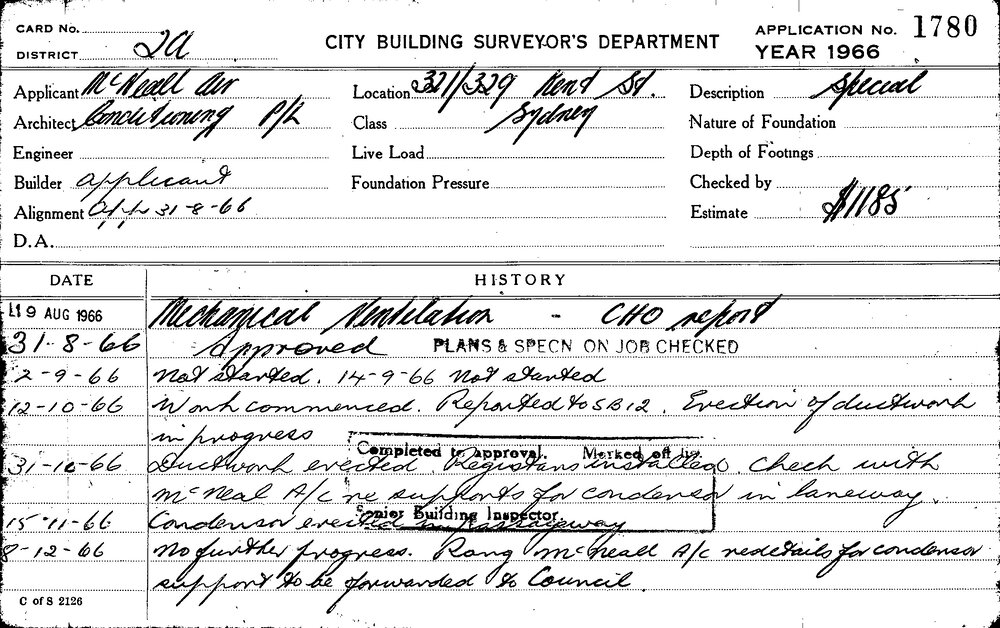 CARD No.
DISTRICT 2A
CITY BUILDING SURVEYOR'S DEPARTMENT
APPLICATION No. 1780
YEAR 1966
Applicant McNeall Air
Location 321/329 Kent St.
Description Special
Architect Conditioning P/L
Class Sydney
Nature of Foundation
Engineer
Live Load
Depth of Footings
Builder applicant
Foundation Pressure
Checked by
Alignment App 31-8-66
Estimate $1185
D.A.
DATE HISTORY
19 AUG 1966 Mechanical Ventilation - CHO report
31-8-66 Approved PLANS & SPECN ON JOB CHECKED
2-9-66 Not started. 14-9-66 Not started
12-10-66 Work commenced. Reported to SB12. Erection of ductwork
in progress
Completed to approval. Marked off by.
31-10-66 Ductwork erected. Registars installed. Check with
McNeal A/C re supports for condensor in laneway.
Senior Building Inspector
15-11-66 Condensor erected in passageway
8-12-66 No further progress. Rang McNeall A/C re details for condensor
support to be forwarded to Council
C of S 2126